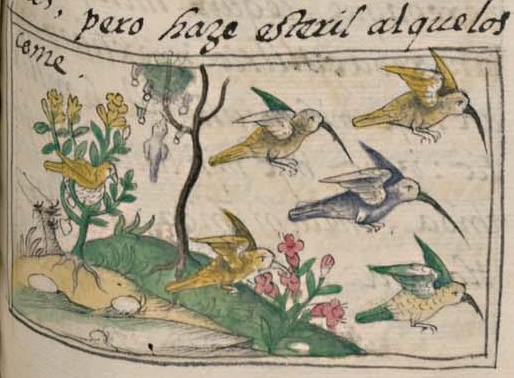 pero haze esteril al que los
come.